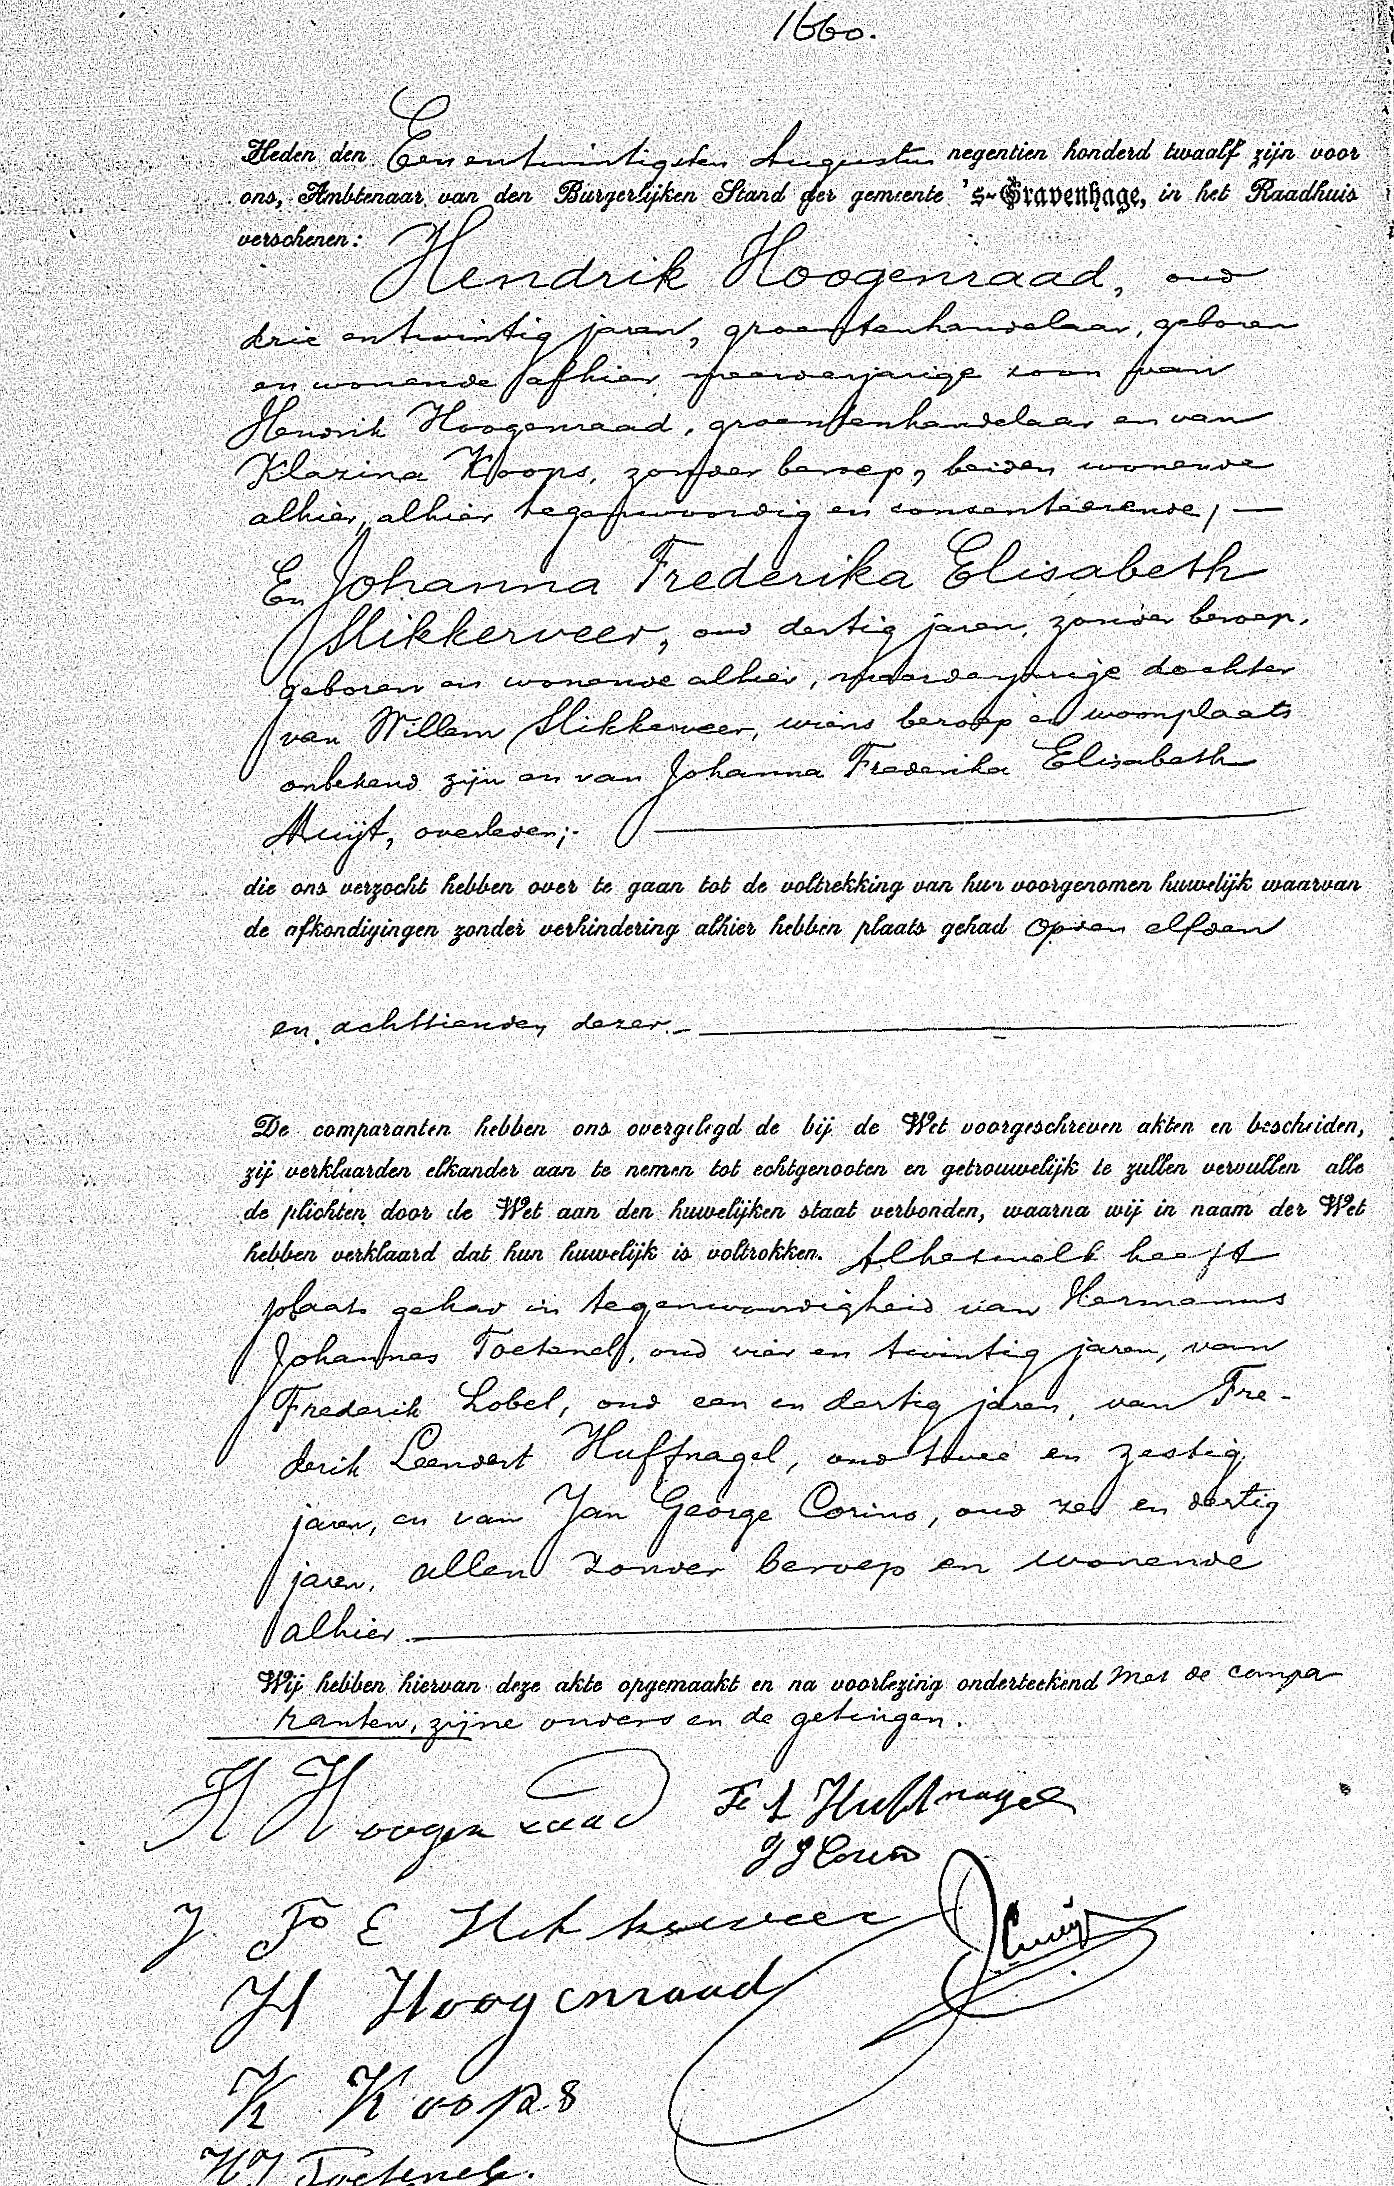 1660.
Heden den Eenentwintigsten Augustus negentien honderd twaalf zijn voor
ons, Ambtenaar van den Burgerlijken Stand der gemeente 's-Gravenhage, in het Raadhuis
verschenen:
Hendrik Hoogenraad, oud
drie entwintig jaren, groentenhandelaar, geboren
en wonende alhier, meerderjarige zoon van
Hendrik Hoogenraad, groentenhandelaar en van
Klazina Koops, zonder beroep, beiden wonende
alhier, alhier tegenwoordig en consenteerende, —
En Johanna Frederika Elisabeth
Slikkerveer, oud dertig jaren, zonder beroep,
geboren en wonende alhier, meerderjarige dochter
van Willem Slikkerveer, wiens beroep en woonplaats
onbekend zijn en van Johanna Frederika Elisabeth
overleden;
die ons verzocht hebben over te gaan tot de voltrekking van hun voorgenomen huwelijk waarvan
de afkondigingen zonder verhindering alhier hebben plaats gehad op den elfden
en achttienden dezer.
De comparanten hebben ons overgelegd de bij de Wet voorgeschreven akten en bescheiden,
zij verklaarden elkander aan te nemen tot echtgenooten en getrouwelijk te zullen vervullen alle
de plichten door de Wet aan den huwelijken staat verbonden, waarna wij in naam der Wet
hebben verklaard dat hun huwelijk is voltrokken. Alhetwelk heeft
plaats gehad in tegenwoordigheid van Hermanus
Johannes Toetenel, oud vier en twintig jaren, van
Frederik Lobel, oud een en dertig jaren, van Fre-
derik Leendert Huffnagel, oud twee en zestig
jaren, en van Jan George Corino, oud zes en dertig
jaren, allen zonder beroep en wonende
alhier.
Wij hebben hiervan deze akte opgemaakt en na voorlezing onderteekend met de compa-
ranten, zijne ouders en de getuigen.
H Hoogenraad
F L Huffnagel
J G Corino
J F E Slikkerveer
H Hoogenraad
K Koops
H J Toetenel.